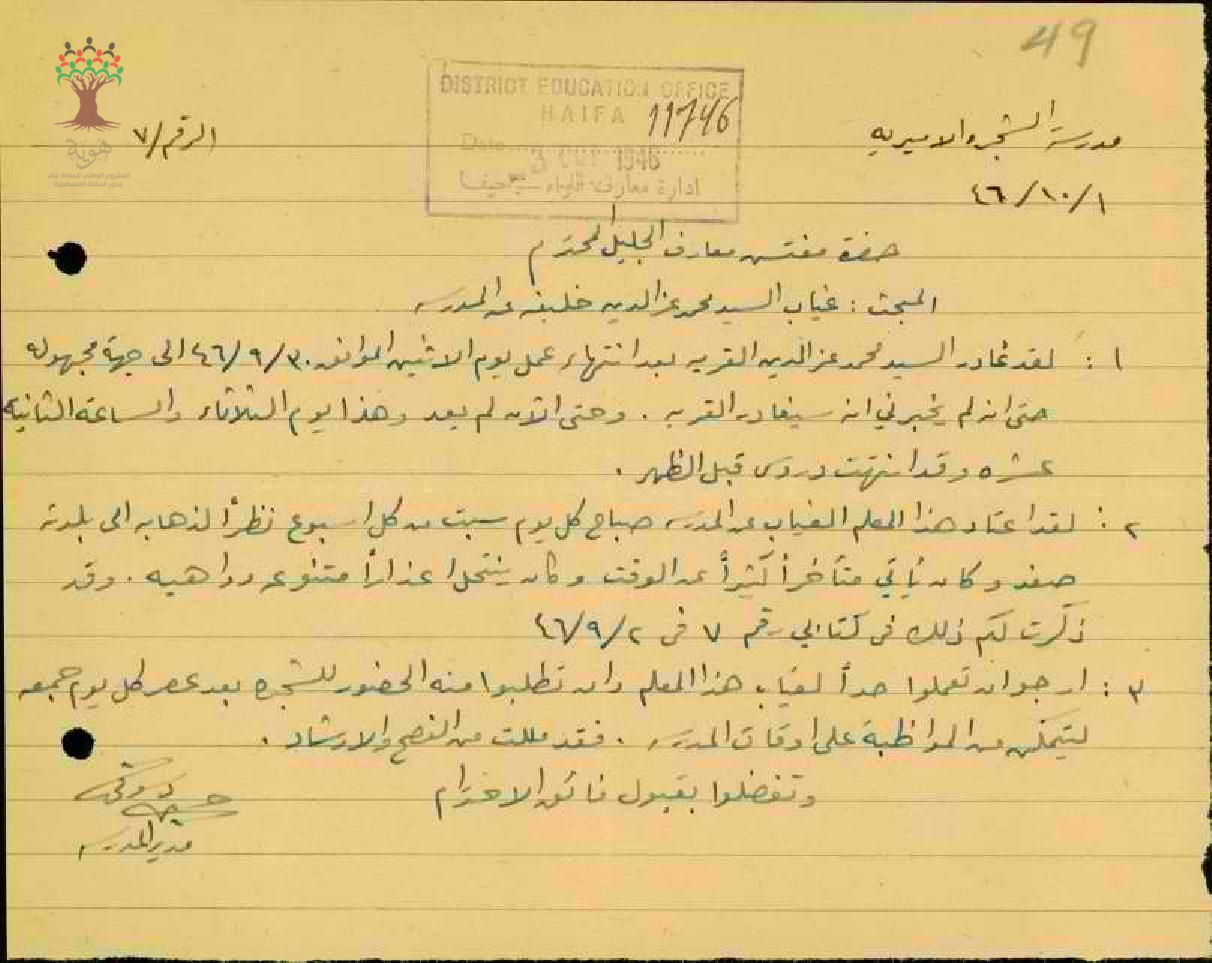 49
DISTRICT EDUCATION OFFICE
HAIFA 11746
Date 3 OCT 1946
ادارة معارف لواء حيفا
هوية
المشروع الوطني للحفاظ على
جذور العائلة الفلسطينية
مدرسة الشجره الاميريه
الرقم/٧
٤٦/١٠/١
حضرة مفتش معارف الجليل المحترم
المبحث : غياب السيد محمد عز الدين خليفه عن المدرسه
١ : لقد غادر السيد محمد عز الدين القريه بعد انتهاء عمل يوم الاثنين الموافق ٤٦/٩/٣٠ الى جهة مجهوله
حتى انه لم يخبرني انه سيغادر القريه . وحتى الآن لم يعد وهذا يوم الثلاثاء والساعه الثانيه
عشره وقد انتهت دروس قبل الظهر .
٢ : لقد اعتاد هذا المعلم الغياب عن المدرسه صباح كل يوم سبت من كل اسبوع نظراً لذهابه الى بلدته
صفد وكان يأتي متأخراً كثيراً عن الوقت وكان ينتحل اعذاراً متنوعه وواهيه . وقد
ذكرت لكم ذلك في كتابي رقم ٧ في ٤٦/٩/٢
٣ : ارجو ان تعملوا حداً لغياب هذا المعلم وان تطلبوا منه الحضور للشجره بعد عصر كل يوم جمعه
ليتمكن من المواظبة على اوقات المدرسه . فقد مللت من النصح والارشاد .
وتفضلوا بقبول فائق الاحترام
مدير المدرسه